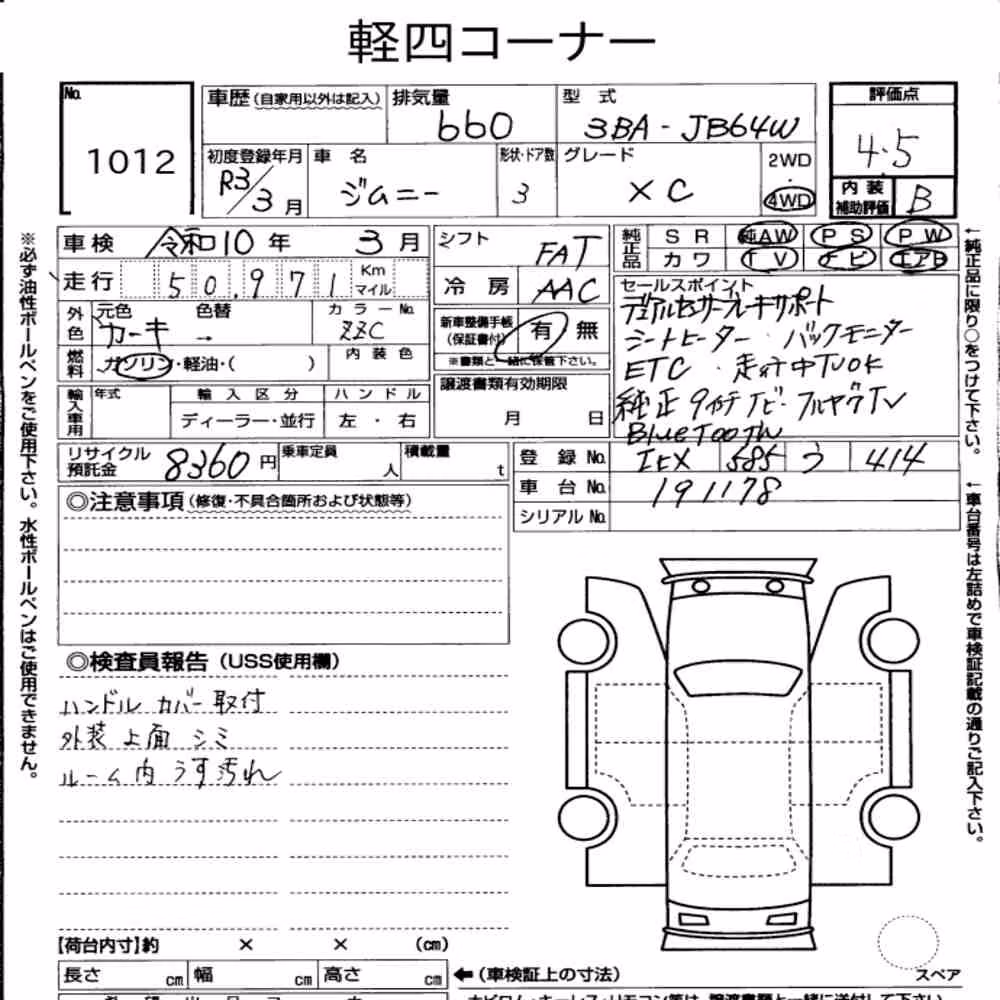 軽四コーナー
No. 1012
車歴(自家用以外は記入) 排気量 660 型式 3BA-JB64W 評価点 4.5
初度登録年月 R3/3月 車名 ジムニー 形状・ドア数 3 グレード XC 2WD・4WD 内装補助評価 B
車検 令和10年 3月 シフト FAT 純正品 SR 純AW PS PW
走行 50,971 Km マイル 冷房 AAC カワ TV ナビ エアB
外色 元色 カーキ 色替 → カラーNo. ZZC 新車整備手帳(保証書付) 有 無
※書類と一緒に保管下さい。
燃料 ガソリン・軽油・( ) 内装色
輸入車用 年式 輸入区分 ディーラー・並行 ハンドル 左・右 譲渡書類有効期限 月 日
セールスポイント
デュアルセンサーブレーキサポート
シートヒーター・バックモニター
ETC・走行中TVOK
純正9インチナビ・フルセグTV
BlueTooTH
リサイクル預託金 8360円 乗車定員 人 積載量 t
登録No. 585 414
車台No. 191178
シリアルNo.
◎注意事項(修復・不具合箇所および状態等)
◎検査員報告(USS使用欄)
ハンドルカバー取付
外装上面シミ
ルーム内うす汚れ
【荷台内寸】約 × × (cm)
長さ cm 幅 cm 高さ cm ←(車検証上の寸法)
スペア
※必ず油性ボールペンをご使用下さい。水性ボールペンはご使用できません。
←純正品に限り○をつけて下さい。
←車台番号は左詰めで車検証記載の通りご記入下さい。